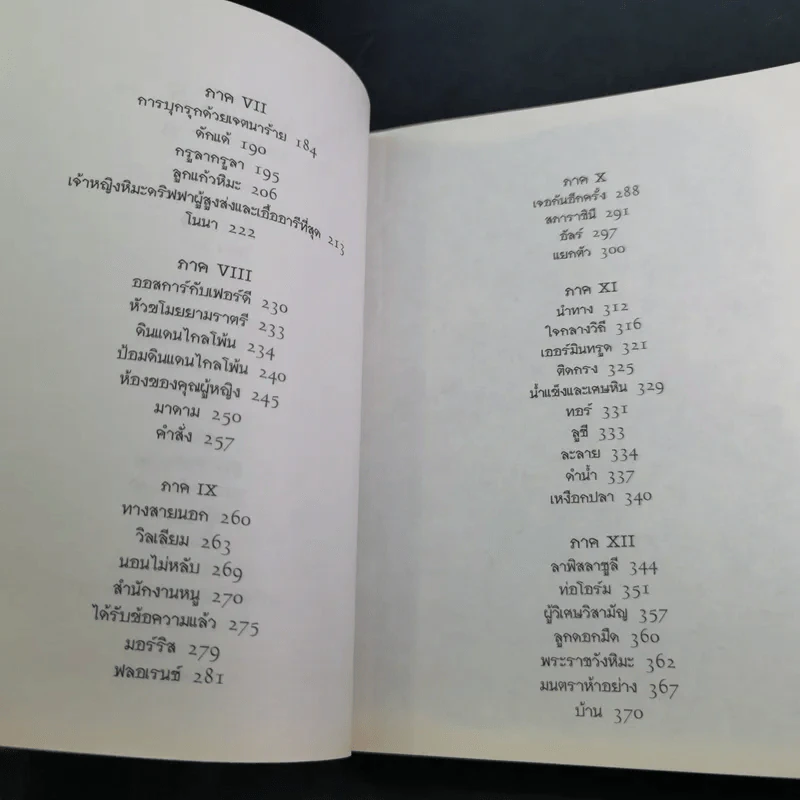 ภาค VII
การบุกรุกด้วยเจตนาร้าย 184
ดักแด้ 190
กรูลากรูลา 195
ลูกแก้วหิมะ 206
เจ้าหญิงหิมะดริฟฟาผู้สูงส่งและเอื้ออารีที่สุด 213
โนนา 222
ภาค VIII
ออสการ์กับเฟอร์ดี 230
หัวขโมยยามราตรี 233
ดินแดนไกลโพ้น 234
ป้อมดินแดนไกลโพ้น 240
ห้องของคุณผู้หญิง 245
มาดาม 250
คำสั่ง 257
ภาค IX
ทางสายนอก 260
วิลเลียม 263
นอนไม่หลับ 269
สำนักงานหนู 270
ได้รับข้อความแล้ว 275
มอร์ริส 279
ฟลอเรนซ์ 281
ภาค X
เจอกันอีกครั้ง 288
สภาราชินี 291
อัลร์ 297
แยกตัว 300
ภาค XI
นำทาง 312
ใจกลางวิถี 316
เออร์มินทรูด 321
ติดกรง 325
น้ำแข็งและเศษหิน 329
ทอร์ 331
ลูซี 333
ละลาย 334
ดำน้ำ 337
เหงือกปลา 340
ภาค XII
ลาพิสลาซูลี 344
ท่อโอร์ม 351
ผู้วิเศษวิสามัญ 357
ลูกดอกมืด 360
พระราชวังหิมะ 362
มนตราห้าอย่าง 367
บ้าน 370